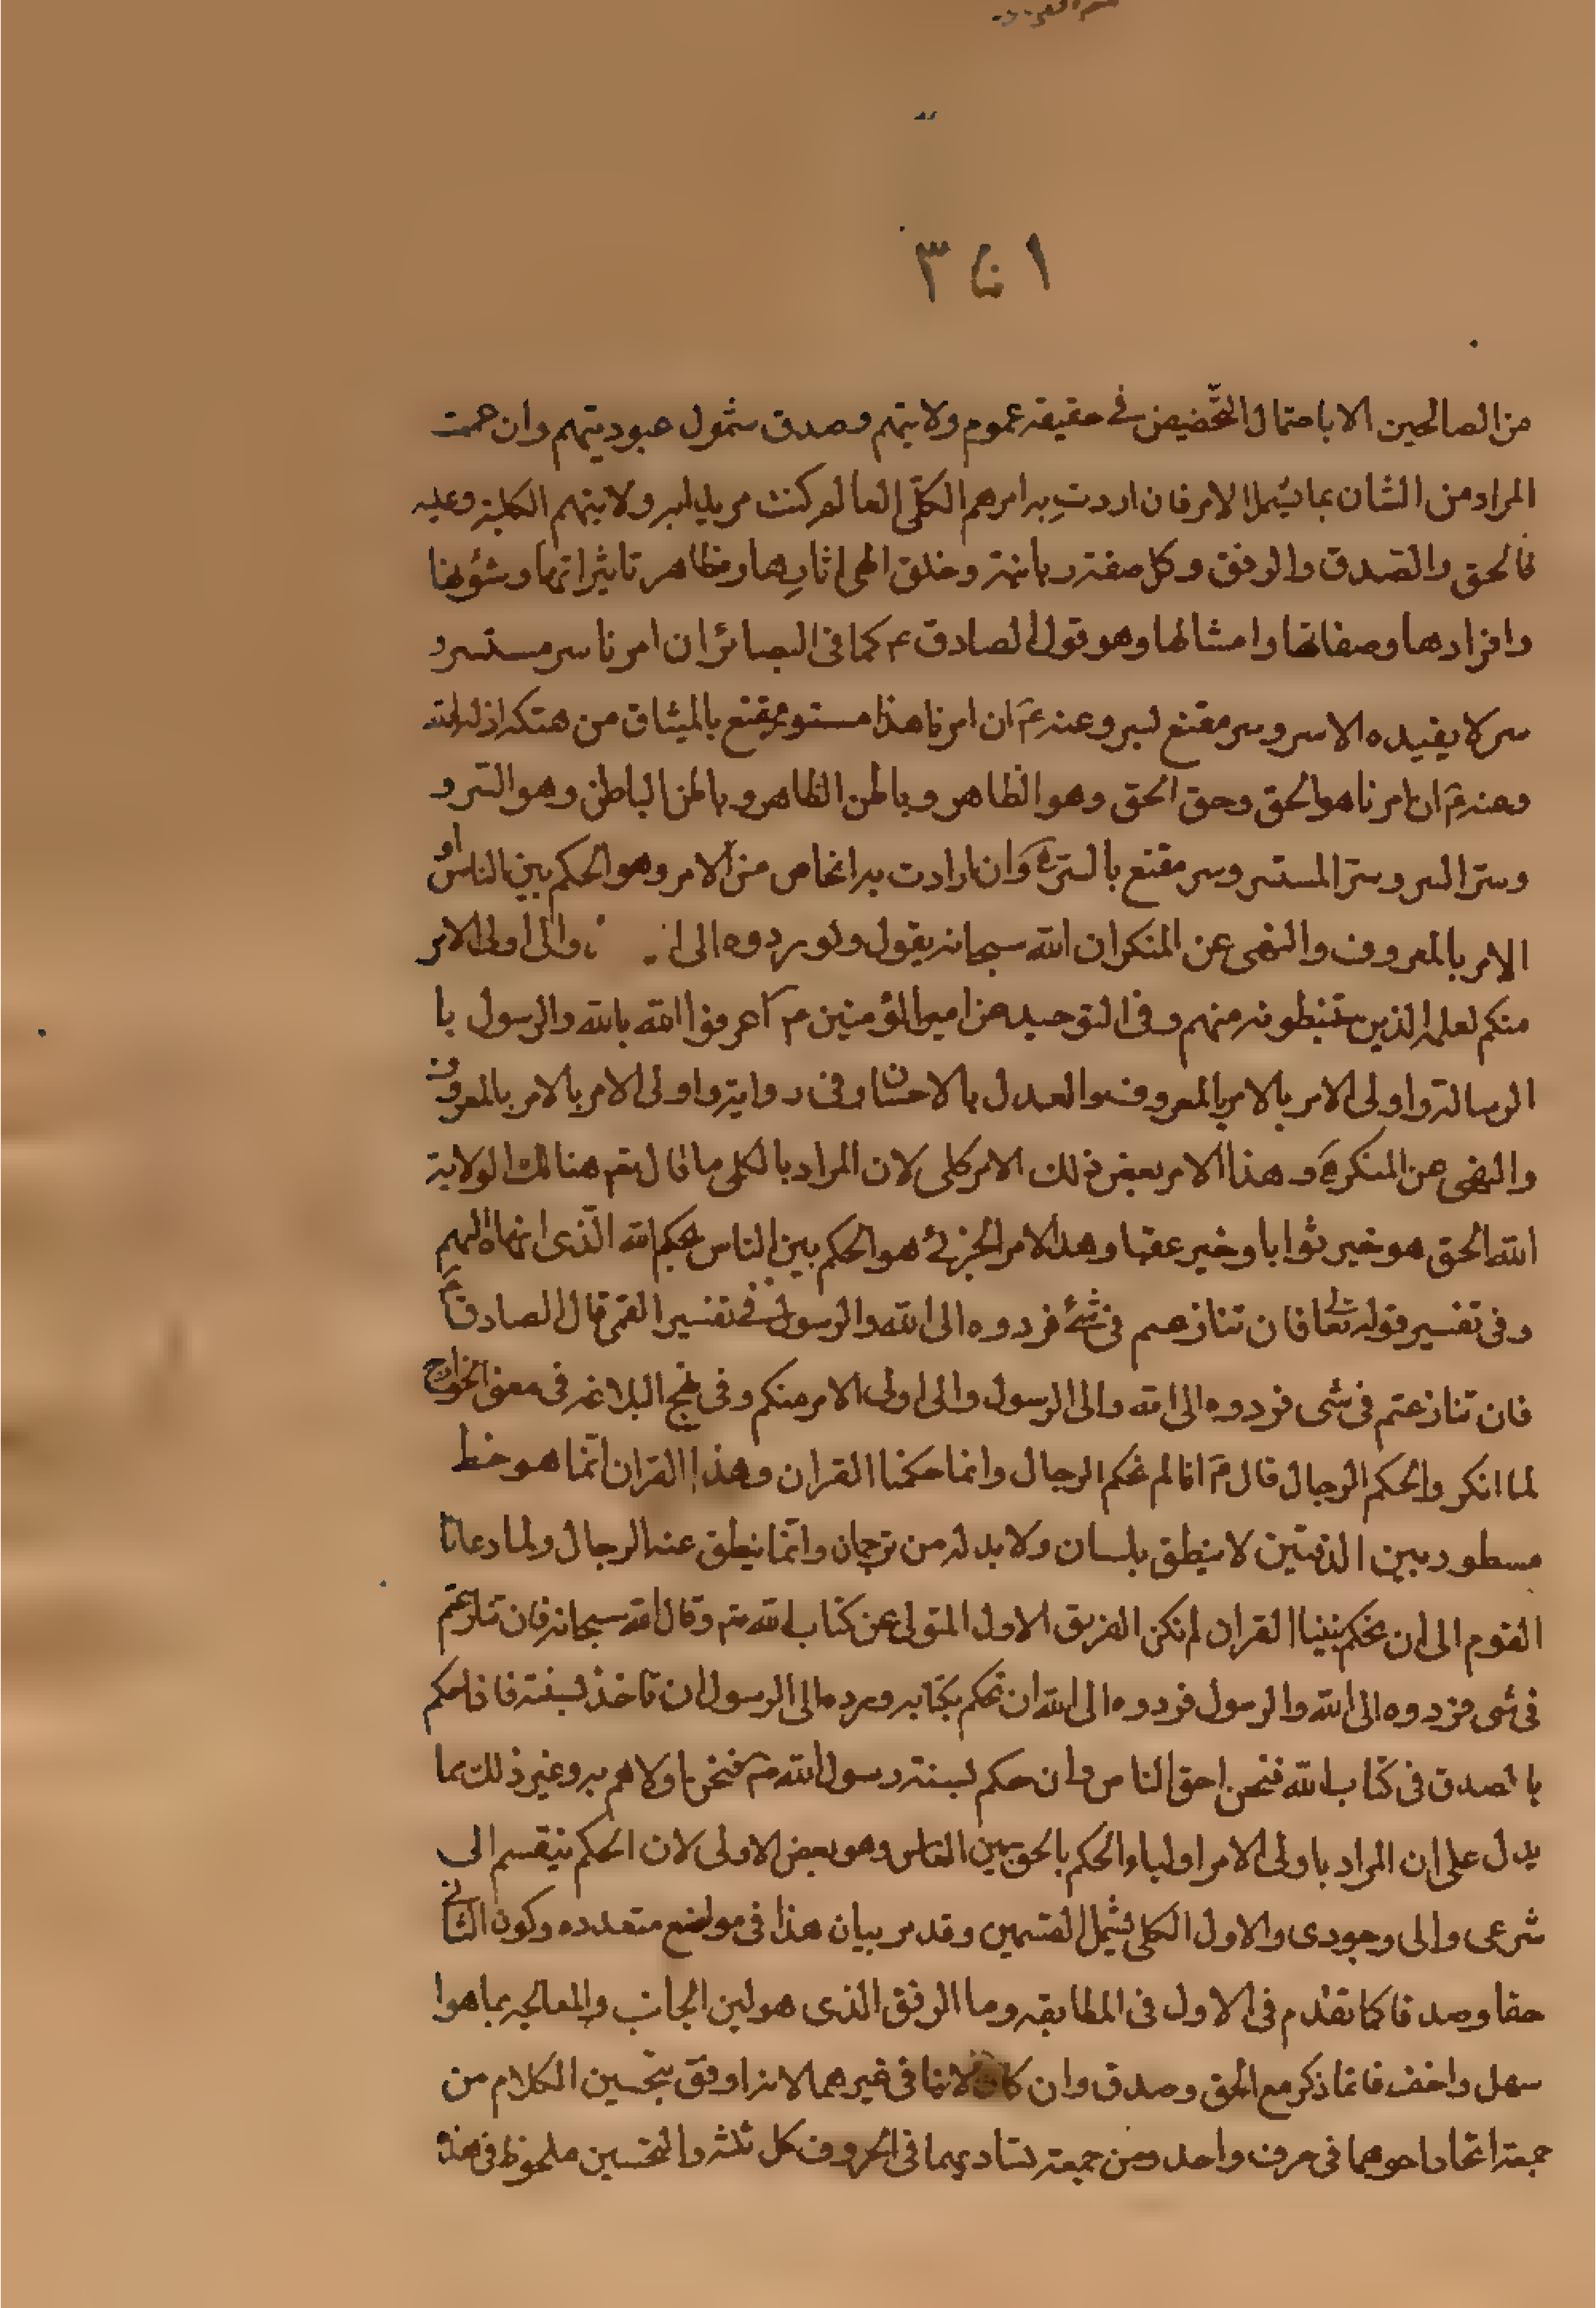 من الصالحين الا باحتمال التخصيص فى حقيقة عموم ولايتهم وصدق شمول عبوديتهم وان
المراد من الشان بما يشمل الامر فان اردت به امرهم الكلى العالم كنت مريدا به ولايتهم الكلية وعليه
فالحق والصدق والرفق وكل صفة ربانية وخلق الهى اثارها ومظاهر تاثيراتها وشؤنها
وافرادها وصفاتها وامثالها وهو قول الصادق ع كما فى البصائر ان امرنا سر مستسر و
سر لا يفيده الا سر وسر مقنع بسر وعنه ع ان امرنا هذا مستور مقنع بالميثاق من هتكه اذله الله
وعنه ع ان امرنا هو الحق وحق الحق وهو الظاهر وباطن الظاهر وباطن الباطن وهو السر و
وسر السر وسر المستسر وسر مقنع بالسر ه وان ارادت به الخاص من الامر وهو الحكم بين الناس او
الامر بالمعروف والنهى عن المنكر ان الله سبحانه يقول ولو ردوه الى والى اولى الامر
منكم لعلمه الذين يستنبطونه منهم وفى التوحيد عن امير المؤمنين ع اعرفوا الله بالله والرسول با
الرسالة واولى الامر بالامر بالمعروف والعدل بالاحسان وفى رواية واولى الامر بالامر بالمعروف
والنهى عن المنكر ه وهذا الامر بعض ذلك الامر كلى لان المراد بالكلى ما قال تعم هنالك الولاية
الله الحق هو خير ثوابا وخير عقبا وهذا الامر الجزئى هو الحكم بين الناس بحكم الله الذى انهاه اليهم
وفى تفسير قوله تعالى فان تنازعتم فى شئ فردوه الى الله والرسول فى تفسير القمى قال الصادق ع
فان تنازعتم فى شى فردوه الى الله والى الرسول والى اولى الامر منكم وفى نهج البلاغه فى معنى الخوارج
لما انكروا تحكم الرجال قال ع انا لم نحكم الرجال وانما حكمنا القران وهذا القران انما هو خط
مسطور بين الدفتين لا ينطق بلسان ولا بد له من ترجمان وانما ينطق عنه الرجال ولما دعانا
القوم الى ان نحكم بيننا القران لم نكن الفريق الاول المتولى عن كتاب الله تع وقال الله سبحانه فان تنازعتم
فى شى فردوه الى الله والرسول فردوه الى الله ان نحكم بكتابه ورده الى الرسول ان ناخذ بسنته فاذا حكم
بالصدق فى كتاب الله فنحن احق الناس وان حكم بسنة رسول الله ص فنحن اولاهم به وغير ذلك مما
يدل على ان المراد باولى الامر اولياء الحكم بالحق بين الناس وهو بعض الاولى لان الحكم ينقسم الى
شرعى والى وجودى والاول الكلى يشمل القسمين وقد مر بيان هذا فى مواضع متعدده وكون الثانى
حقا وصدقا كما تقدم فى الاول فى المطابقه وما الرفق الذى هو لين الجانب والمعالجه بما هوا
سهل واخف فانما ذكر مع الحق وصدق وان كان لانما فى غيرهما لانه اوفق بتحسين الكلام من
جهة اتحاد فى حرف واحد ومن جهة تساويهما فى الحروف كل ثلثه والتحسين ملحوظ فى هذه